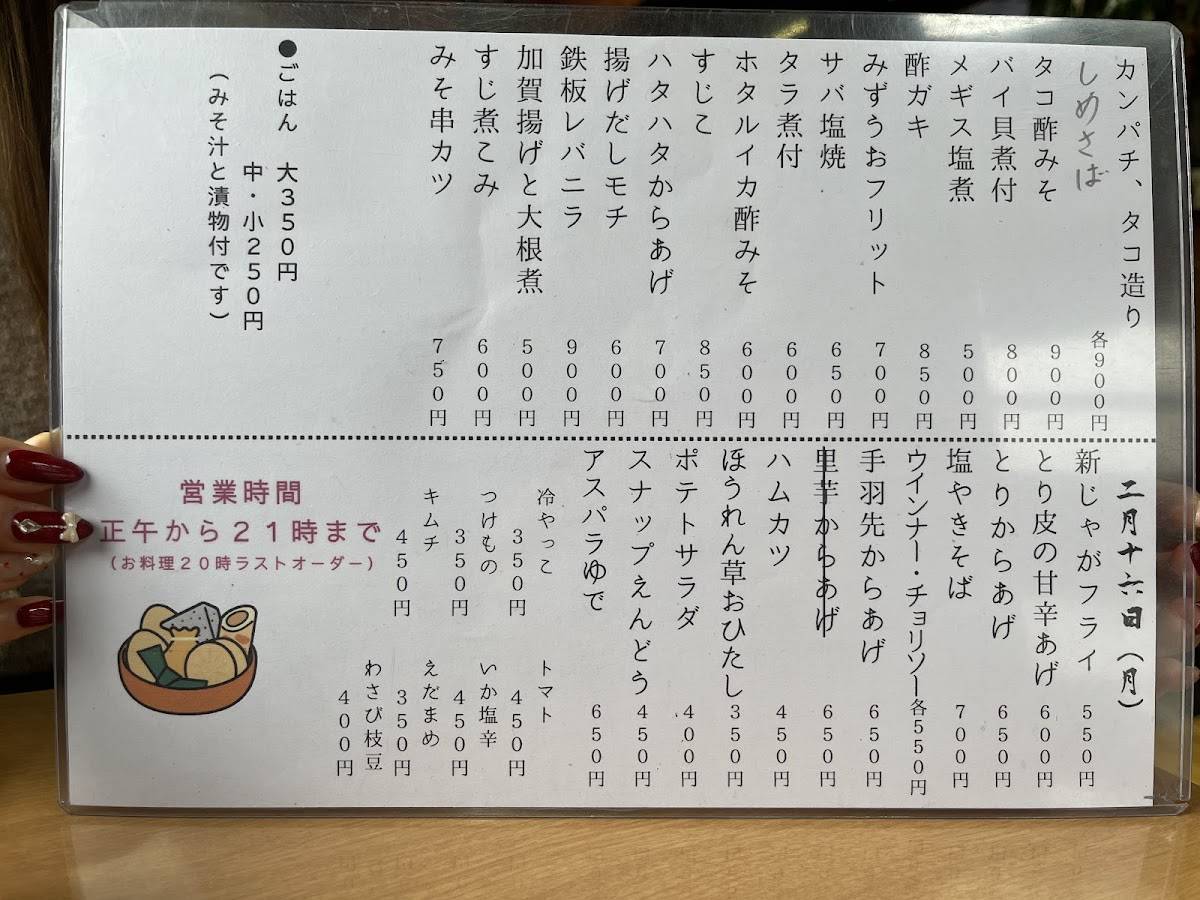 カンパチ、タコ造り
しめさば
各900円
タコ酢みそ 900円
バイ貝煮付 800円
メギス塩煮 500円
酢ガキ 850円
みずうおフリット 700円
サバ塩焼 650円
タラ煮付 600円
ホタルイカ酢みそ 600円
すじこ 850円
ハタハタからあげ 700円
揚げだしモチ 600円
鉄板レバニラ 900円
加賀揚げと大根煮 500円
すじ煮こみ 600円
みそ串カツ 750円
●ごはん 大350円
中・小250円
(みそ汁と漬物付です)
二月十六日(月)
新じゃがフライ 550円
とり皮の甘辛あげ 600円
とりからあげ 650円
塩やきそば 700円
ウインナー・チョリソー 各550円
手羽先からあげ 650円
里芋からあげ 650円
ハムカツ 450円
ほうれん草おひたし 350円
ポテトサラダ 400円
スナップえんどう 450円
アスパラゆで 650円
冷やっこ 350円
トマト 450円
つけもの 350円
いか塩辛 450円
キムチ 450円
えだまめ 350円
わさび枝豆 400円
営業時間
正午から21時まで
(お料理20時ラストオーダー)